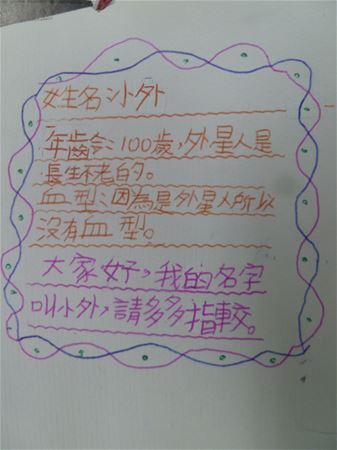 姓名:小外
年齡:100歲,外星人是
長生不老的。
血型:因為是外星人所以
沒有血型。
大家好,我的名字
叫小外,請多多指較。